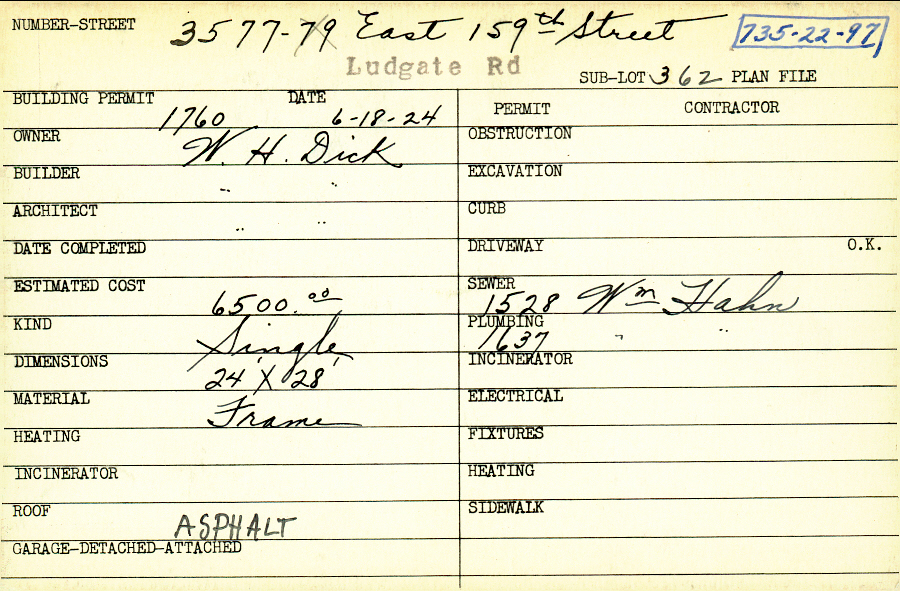 NUMBER-STREET 3577-79 East 159th Street 735-22-97
Ludgate Rd
SUB-LOT 362 PLAN FILE
BUILDING PERMIT 1760 DATE 6-18-24
OWNER W. H. Dick
BUILDER " "
ARCHITECT " "
DATE COMPLETED
ESTIMATED COST 6500.00
KIND Single
DIMENSIONS 24' X 28'
MATERIAL Frame
HEATING
INCINERATOR
ROOF ASPHALT
GARAGE-DETACHED-ATTACHED
PERMIT CONTRACTOR
OBSTRUCTION
EXCAVATION
CURB
DRIVEWAY O.K.
SEWER 1528 Wm Hahn
PLUMBING 1637 " "
INCINERATOR
ELECTRICAL
FIXTURES
HEATING
SIDEWALK